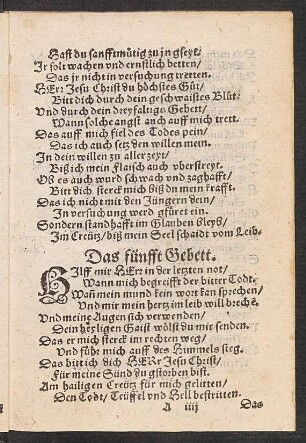 Hast du sanfftmütig zu jn gseyt:
Ir solt wachen vnd ernstlich betten/
Das jr nicht in versuchung tretten.
HErr Jesu Christ du höchstes Gůt/
Bitt dich durch dein geschwaistes Blůt:
Vnd durch dein dreyfaltigs Gebett/
Wann solche angst auch auff mich trett.
Das auff mich fiel des Todes pein/
Das ich auch setz den willen mein.
In dein willen zu aller zeyt/
Biß ich mein Flaisch auch vberstreyt.
Ob es auch wurd schwach vnd zaghafft/
Bitt dich sterck mich biß dn mein krafft.
Das ich nicht mit den Jüngern dein/
In versuchung werd gfüret ein.
Sondern standhafft im Glauben bleyb/
Im Creütz/ biß mein Seel schaidt vom Leib.
Das fünfft Gebett.
HIlff mir HErr in der letzten not/
Wann mich begreifft der bitter Todt.
Wañ mein mund kein wort kan sprechen/
Vnd mir mein hertz im leib will brechẽ.
Vnd meine Augen sich verwenden/
Dein heyligen Gaist wölst du mir senden.
Das er mich sterck im rechten weg/
Vnd führ mich auff des Himmels steg.
Das bitt ich dich HERr Jesu Christ/
Für meine Sünd du gstorben bist.
Am hailigen Creütz für mich gelitten/
Den Todt/ Teüffel vnd Hell bestritten.
A iiij Das